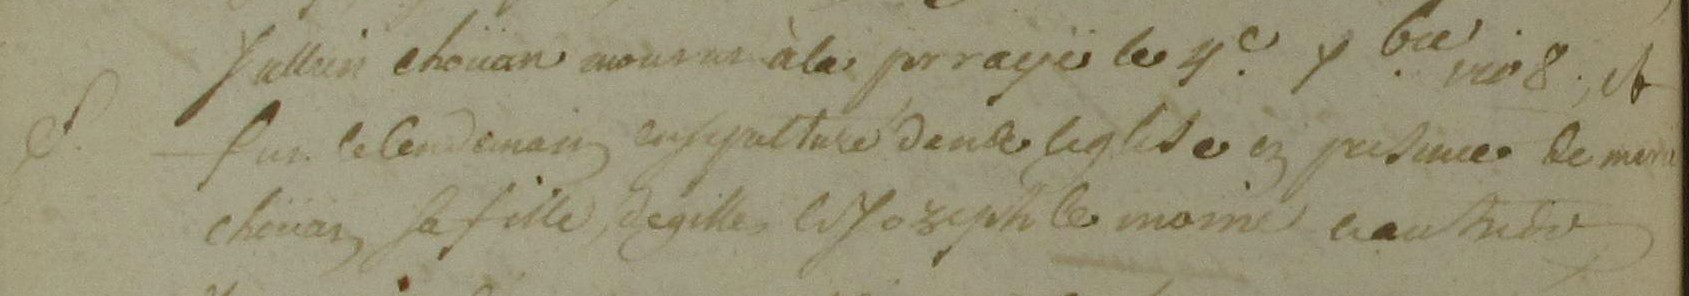 Jullien choüan mourut à la prraye le 4e Xbre 1708, et
S. fut le lendemain ensepulturé dans leglise en presence de
choüan sa fille, de gilles et Jozeph le moine et autres